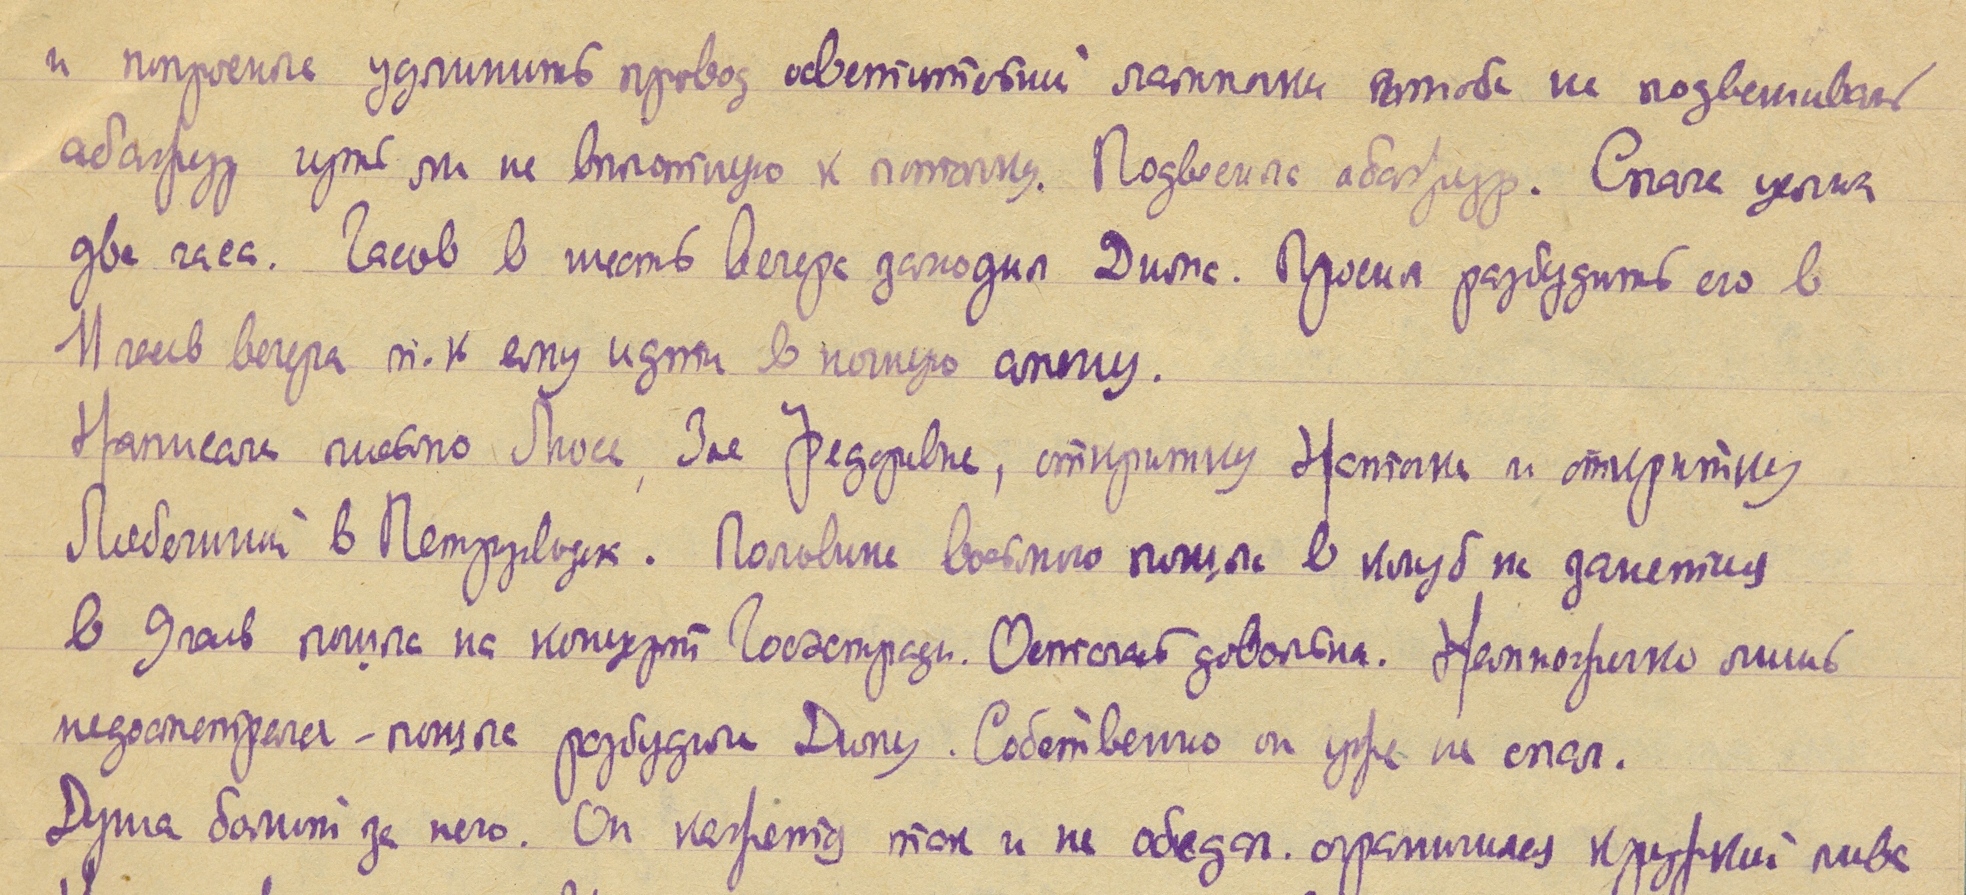 и попросила удлинить провод осветительной лампочки чтобы не подвешивать
абажур чуть ли не вплотную к потолку. Подвесила абажур. Спала целых
два часа. Часов в шесть вечера заходил Дима. Просил разбудить его в
11 часов вечера т.к ему идти в ночную смену.
Написала письмо Люсе, Зое Федоровне, открытку Наточке и открытку
в Петрозаводск. Половине восьмого пошла в клуб на занятия
в 9 часов пошла на концерт Госэстрады. Осталась довольна. Немножечко лишь
недосмотрела - пошла разбудила Диму. Собственно он уже не спал.
Душа болит за него. Он кажется так и не обедал. ограничился кружкой пива